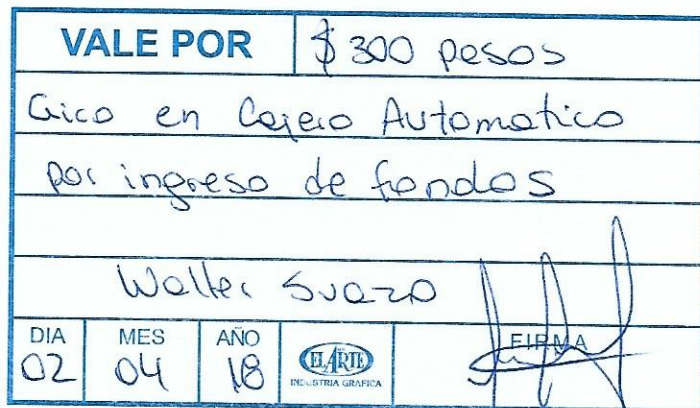 VALE POR $300 pesos
Giro en Cajero Automatico
por ingreso de fondos
Walter Suazo
DIA MES AÑO FIRMA
02 04 18
EL ARTE
INDUSTRIA GRAFICA